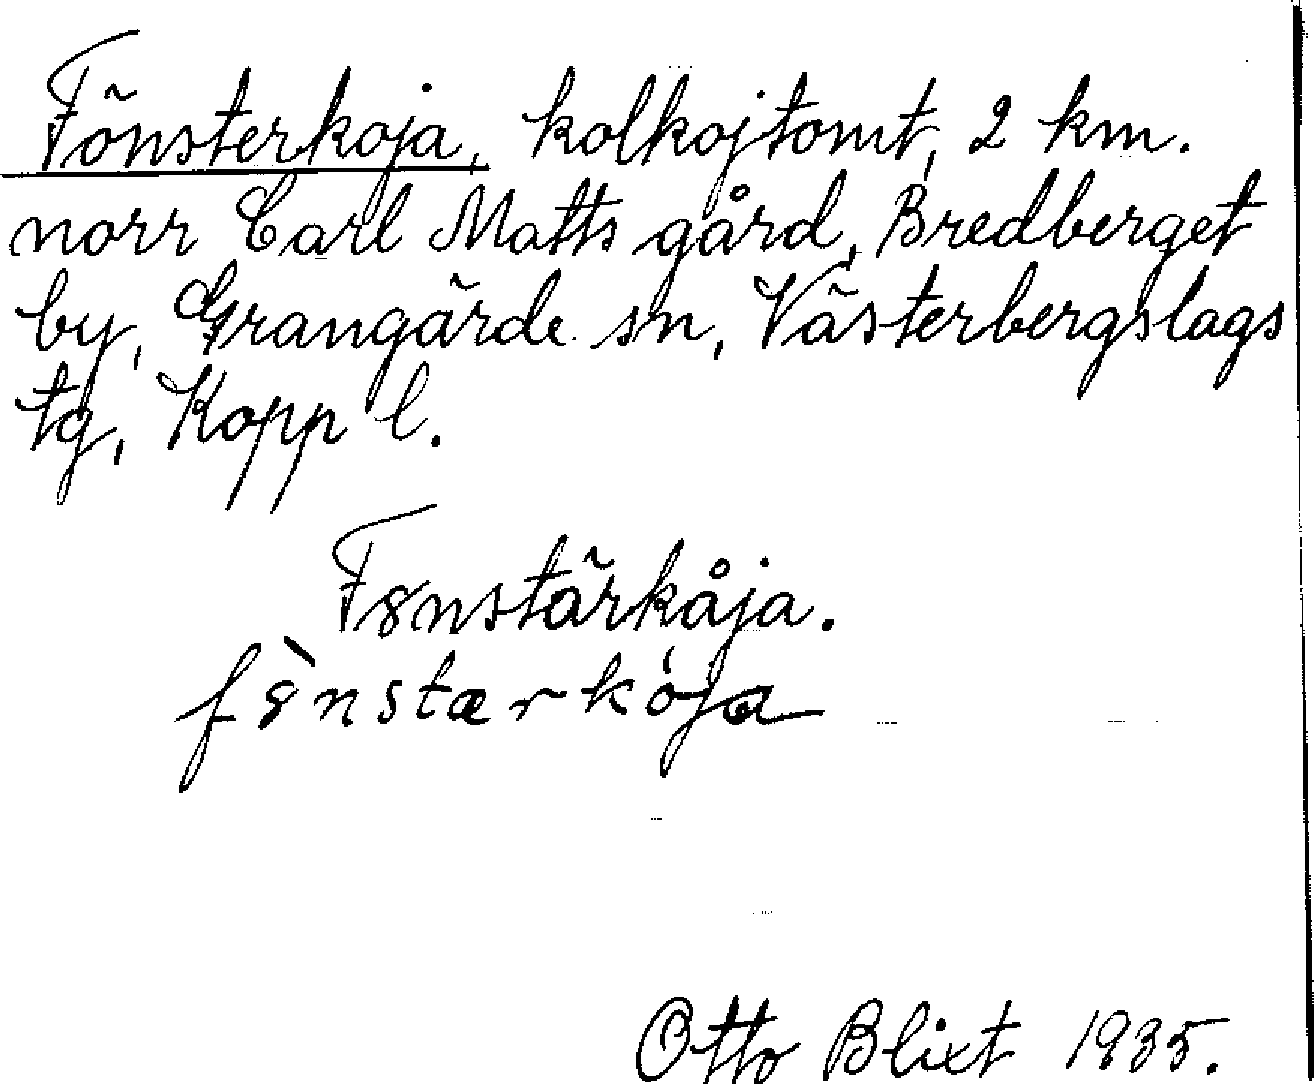 Fönsterkoja, kolkojtomt, 2 km.
norr Carl Matts gård, Bredberget
by, Grangärde sn, Västerbergslags
tg, Kopp l.
F8nstärkåja.
f8̀nstærkója
Otto Blixt 1935.